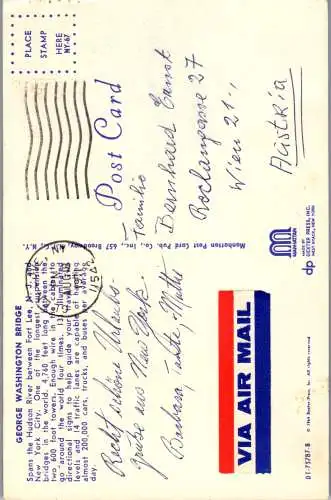 GEORGE WASHINGTON BRIDGE
Spans the Hudson River between Fort Lee, N. J. and
New York City. One of the longest suspension
bridges in the world, 4,760 feet long between the
two 600 foot towers. Enough wire in the cables to
go around the world four times. (3) Illuminated
directional signs to help guide your travel. Two
levels and 14 traffic lanes are capable of handling
almost 200,000 cars, trucks, and buses per average
day.
Recht schöne Urlaubs-
grüße aus New York.
Barbara,
PLACE
STAMP
HERE
NY-67
Post Card
Familie
Bernhard Ernst
Wien 21.,
Austria
Manhattan Post Card Pub. Co., Inc., 657 Broadway, N. Y. C., N. Y.
VIA AIR MAIL
dp
m
MANHATTAN
MADE BY
DEXTER PRESS, INC.
WEST NYACK, NEW YORK
© 1964 Dexter Press, Inc. All rights reserved.
DT-75787-B